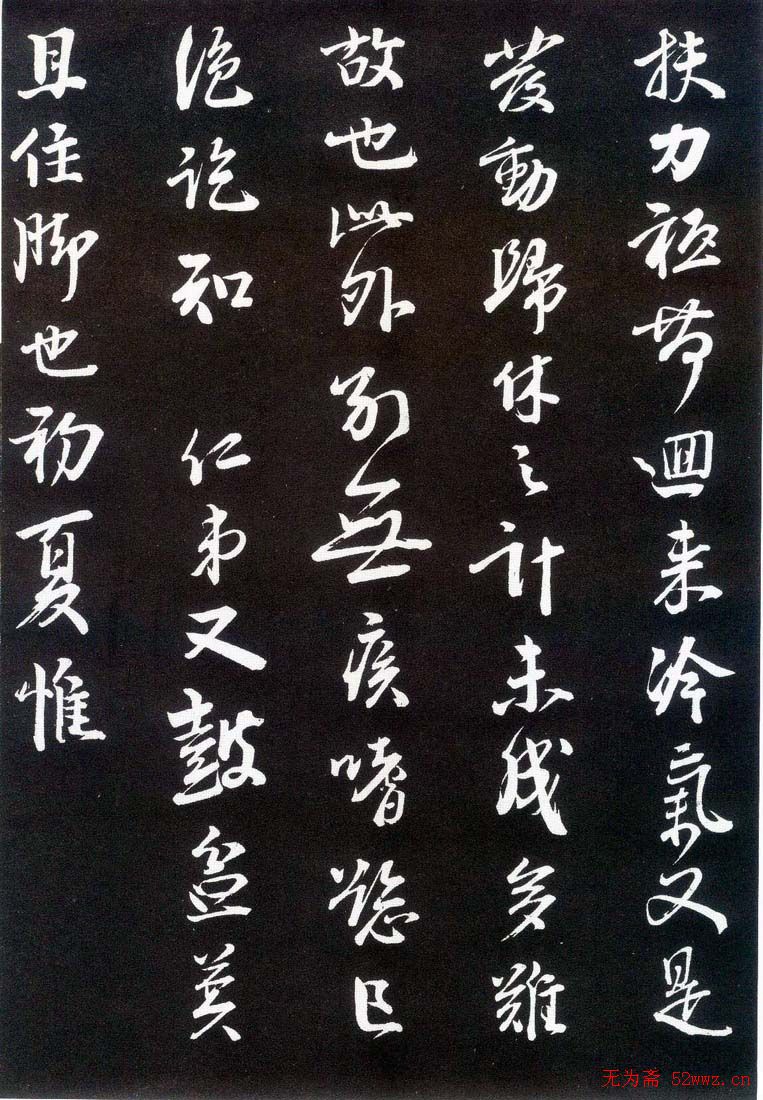 扶力祗芾迴来冷氣又是
發動歸休之計未成多難
故也此外別無疾嗜慾已
絶訖知 仁弟又鼓盆莫
且住脚也初夏惟
无为斋 52wwz.cn